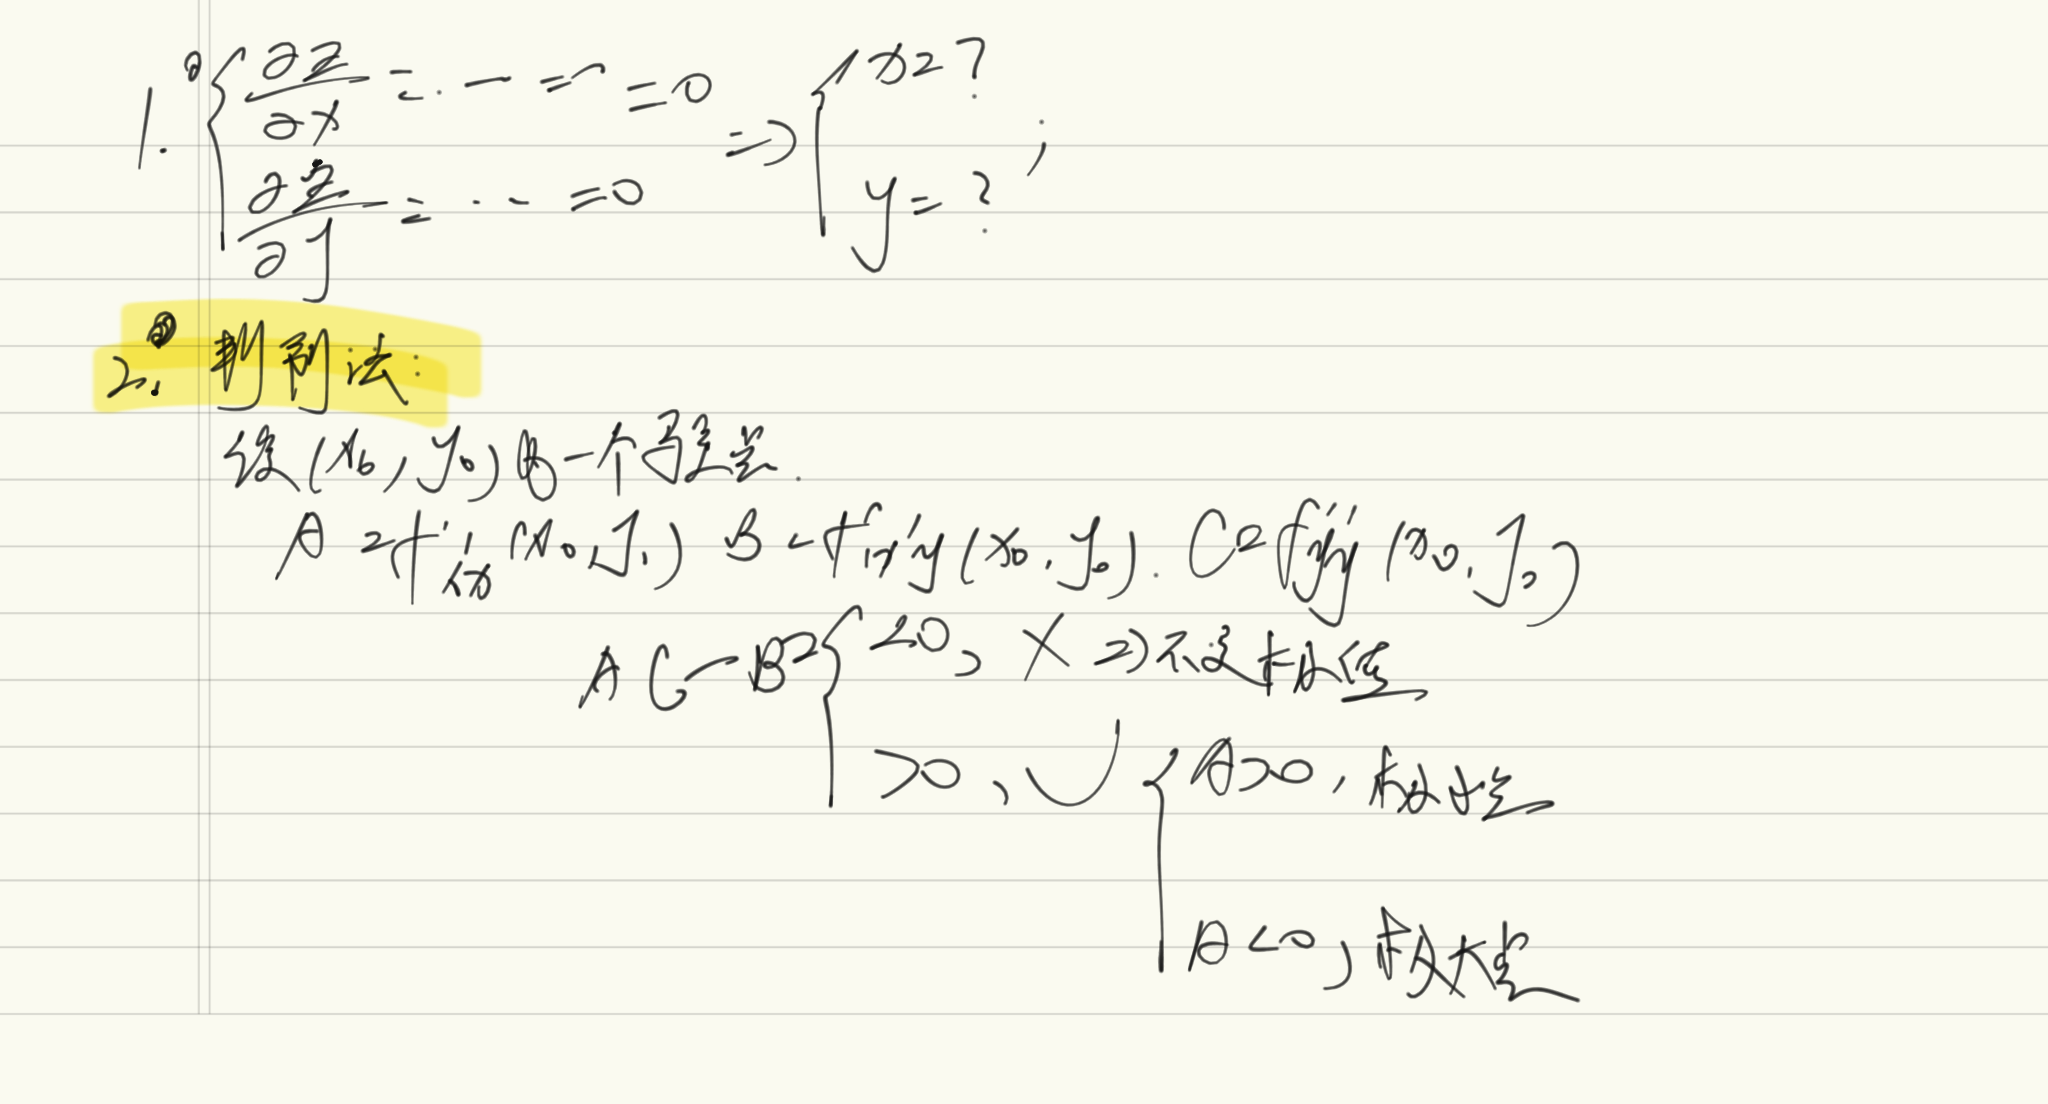 1.° { ∂z/∂x = ... = ... = 0
∂z/∂y = ... = 0 ⇒ { x = ?
y = ? ;
2.° 判别法:
设(x₀, y₀)为一个驻点.
A = f''xx(x₀, y₀) B = f''xy(x₀, y₀). C = f''yy(x₀, y₀)
AC - B² { <0, × ⇒ 不是极值
>0, ✓ { A>0, 极小点
A<0, 极大点